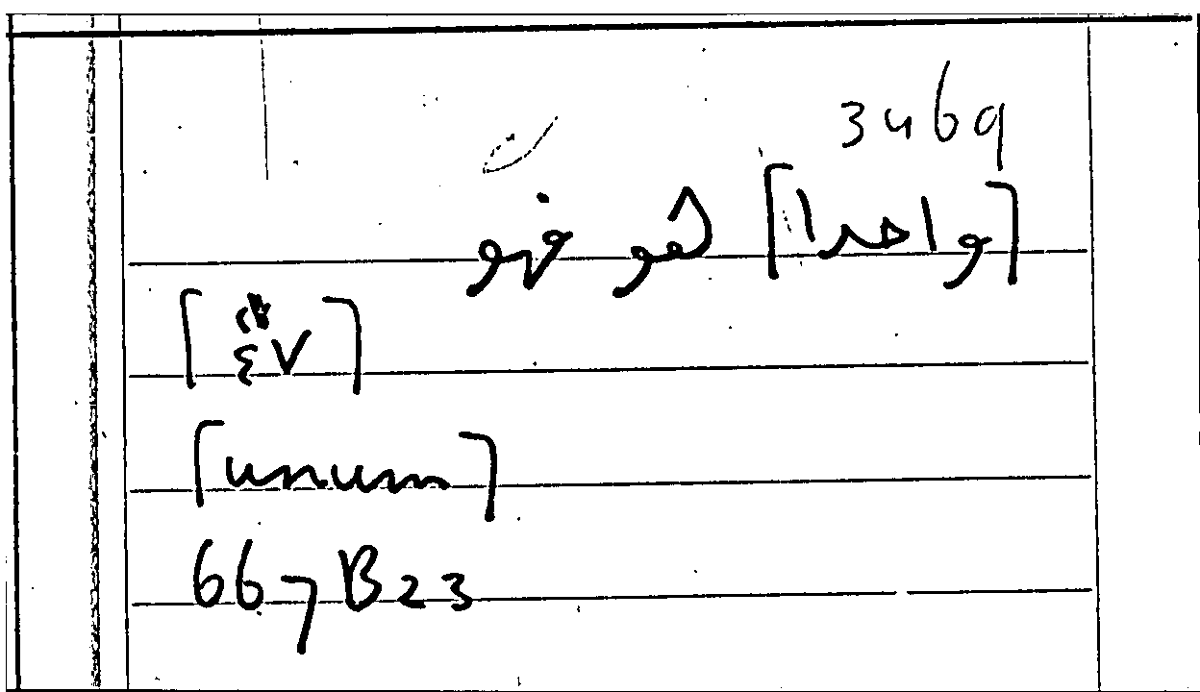 3469
[واحدا] فهو
[ἓν]
[unum]
667 B 23